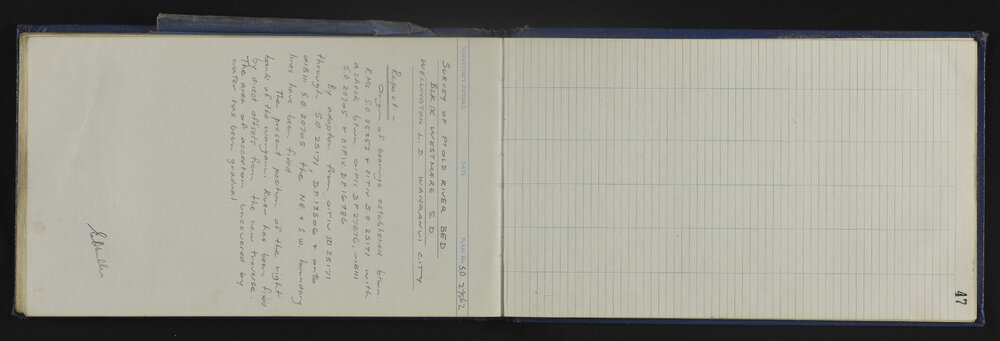 SURVEYOR'S INITIALS DATE PLAN No. SO 29862
SURVEY OF Pt OLD RIVER BED
BLK IX WESTMERE S.D.
WELLINGTON L.D. WANGANUI CITY
Report:-
Origin of bearings established btwn
R.Mc S.O. 25352 & OITIV S.O. 25171 with
a check btwn OIPII DP 27676, OIBIII
S.O. 20705 & OIPIV DP 16786
By adoption from OITIV SO 25171
through S.O. 25171, DP 13506 & onto
OIBIII S.O. 20705 the NE & S.W. boundary
lines have been fixed
The present position of the right
bank of the Wanganui River has been fixed
by direct offsets from the new traverse.
The area of accretion uncovered by
water has been gradual.
47